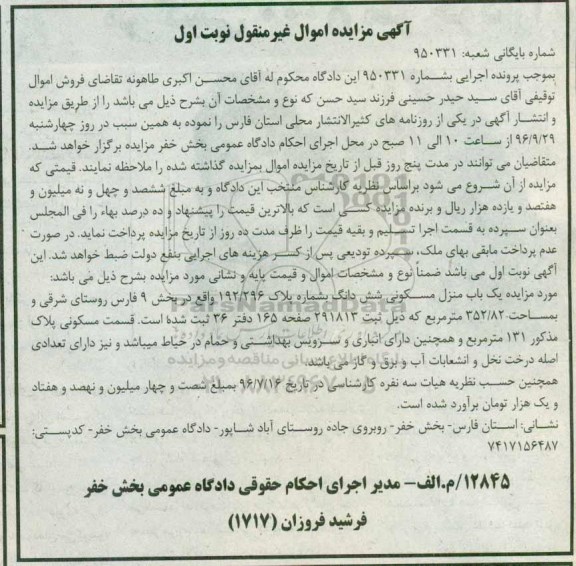 آگهی مزایده اموال غیرمنقول نوبت اول
شماره بایگانی شعبه: ۹۵۰۳۳۱
بموجب پرونده اجرایی بشماره ۹۵۰۳۳۱ این دادگاه محکوم له آقای محسن اکبری طاهونه تقاضای فروش اموال
توقیفی آقای سید حیدر حسینی فرزند سید حسن که نوع و مشخصات آن بشرح ذیل می باشد را از طریق مزایده
و انتشار آگهی در یکی از روزنامه های کثیرالانتشار محلی استان فارس را نموده به همین سبب در روز چهارشنبه
۹۶/۹/۲۹ از ساعت ۱۰ الی ۱۱ صبح در محل اجرای احکام دادگاه عمومی بخش خفر مزایده برگزار خواهد شد.
متقاضیان می توانند در مدت پنج روز قبل از تاریخ مزایده اموال بمزایده گذاشته شده را ملاحظه نمایند. قیمتی که
مزایده از آن شروع می شود براساس نظریه کارشناس منتخب این دادگاه و به مبلغ ششصد و چهل و نه میلیون و
هفتصد و یازده هزار ریال و برنده مزایده کسی است که بالاترین قیمت را پیشنهاد و ده درصد بهاء را فی المجلس
بعنوان سپرده به قسمت اجرا تسلیم و بقیه قیمت را ظرف مدت ده روز از تاریخ مزایده پرداخت نماید. در صورت
عدم پرداخت مابقی بهای ملک، سپرده تودیعی پس از کسر هزینه های اجرایی بنفع دولت ضبط خواهد شد. این
آگهی نوبت اول می باشد ضمناً نوع و مشخصات اموال و قیمت پایه و نشانی مورد مزایده بشرح ذیل می باشد:
مورد مزایده یک باب منزل مسکونی شش دانگ بشماره پلاک ۱۹۲/۲۹۶ واقع در بخش ۹ فارس روستای شرقی و
بمساحت ۳۵۲/۸۲ مترمربع که ذیل ثبت ۲۹۱۸۱۳ صفحه ۱۶۵ دفتر ۳۶ ثبت شده است. قسمت مسکونی پلاک
مذکور ۱۳۱ مترمربع و همچنین دارای انباری و سرویس بهداشتی و حمام در حیاط میباشد و نیز دارای تعدادی
اصله درخت نخل و انشعابات آب و برق و گاز می باشد.
همچنین حسب نظریه هیات سه نفره کارشناسی در تاریخ ۹۶/۷/۱۶ بمبلغ شصت و چهار میلیون و نهصد و هفتاد
و یک هزار تومان برآورد شده است.
نشانی: استان فارس- بخش خفر- روبروی جاده روستای آباد شاپور- دادگاه عمومی بخش خفر- کدپستی:
۷۴۱۷۱۵۶۴۸۷
۱۲۸۴۵/م.الف- مدیر اجرای احکام حقوقی دادگاه عمومی بخش خفر
فرشید فروزان (۱۷۱۷)